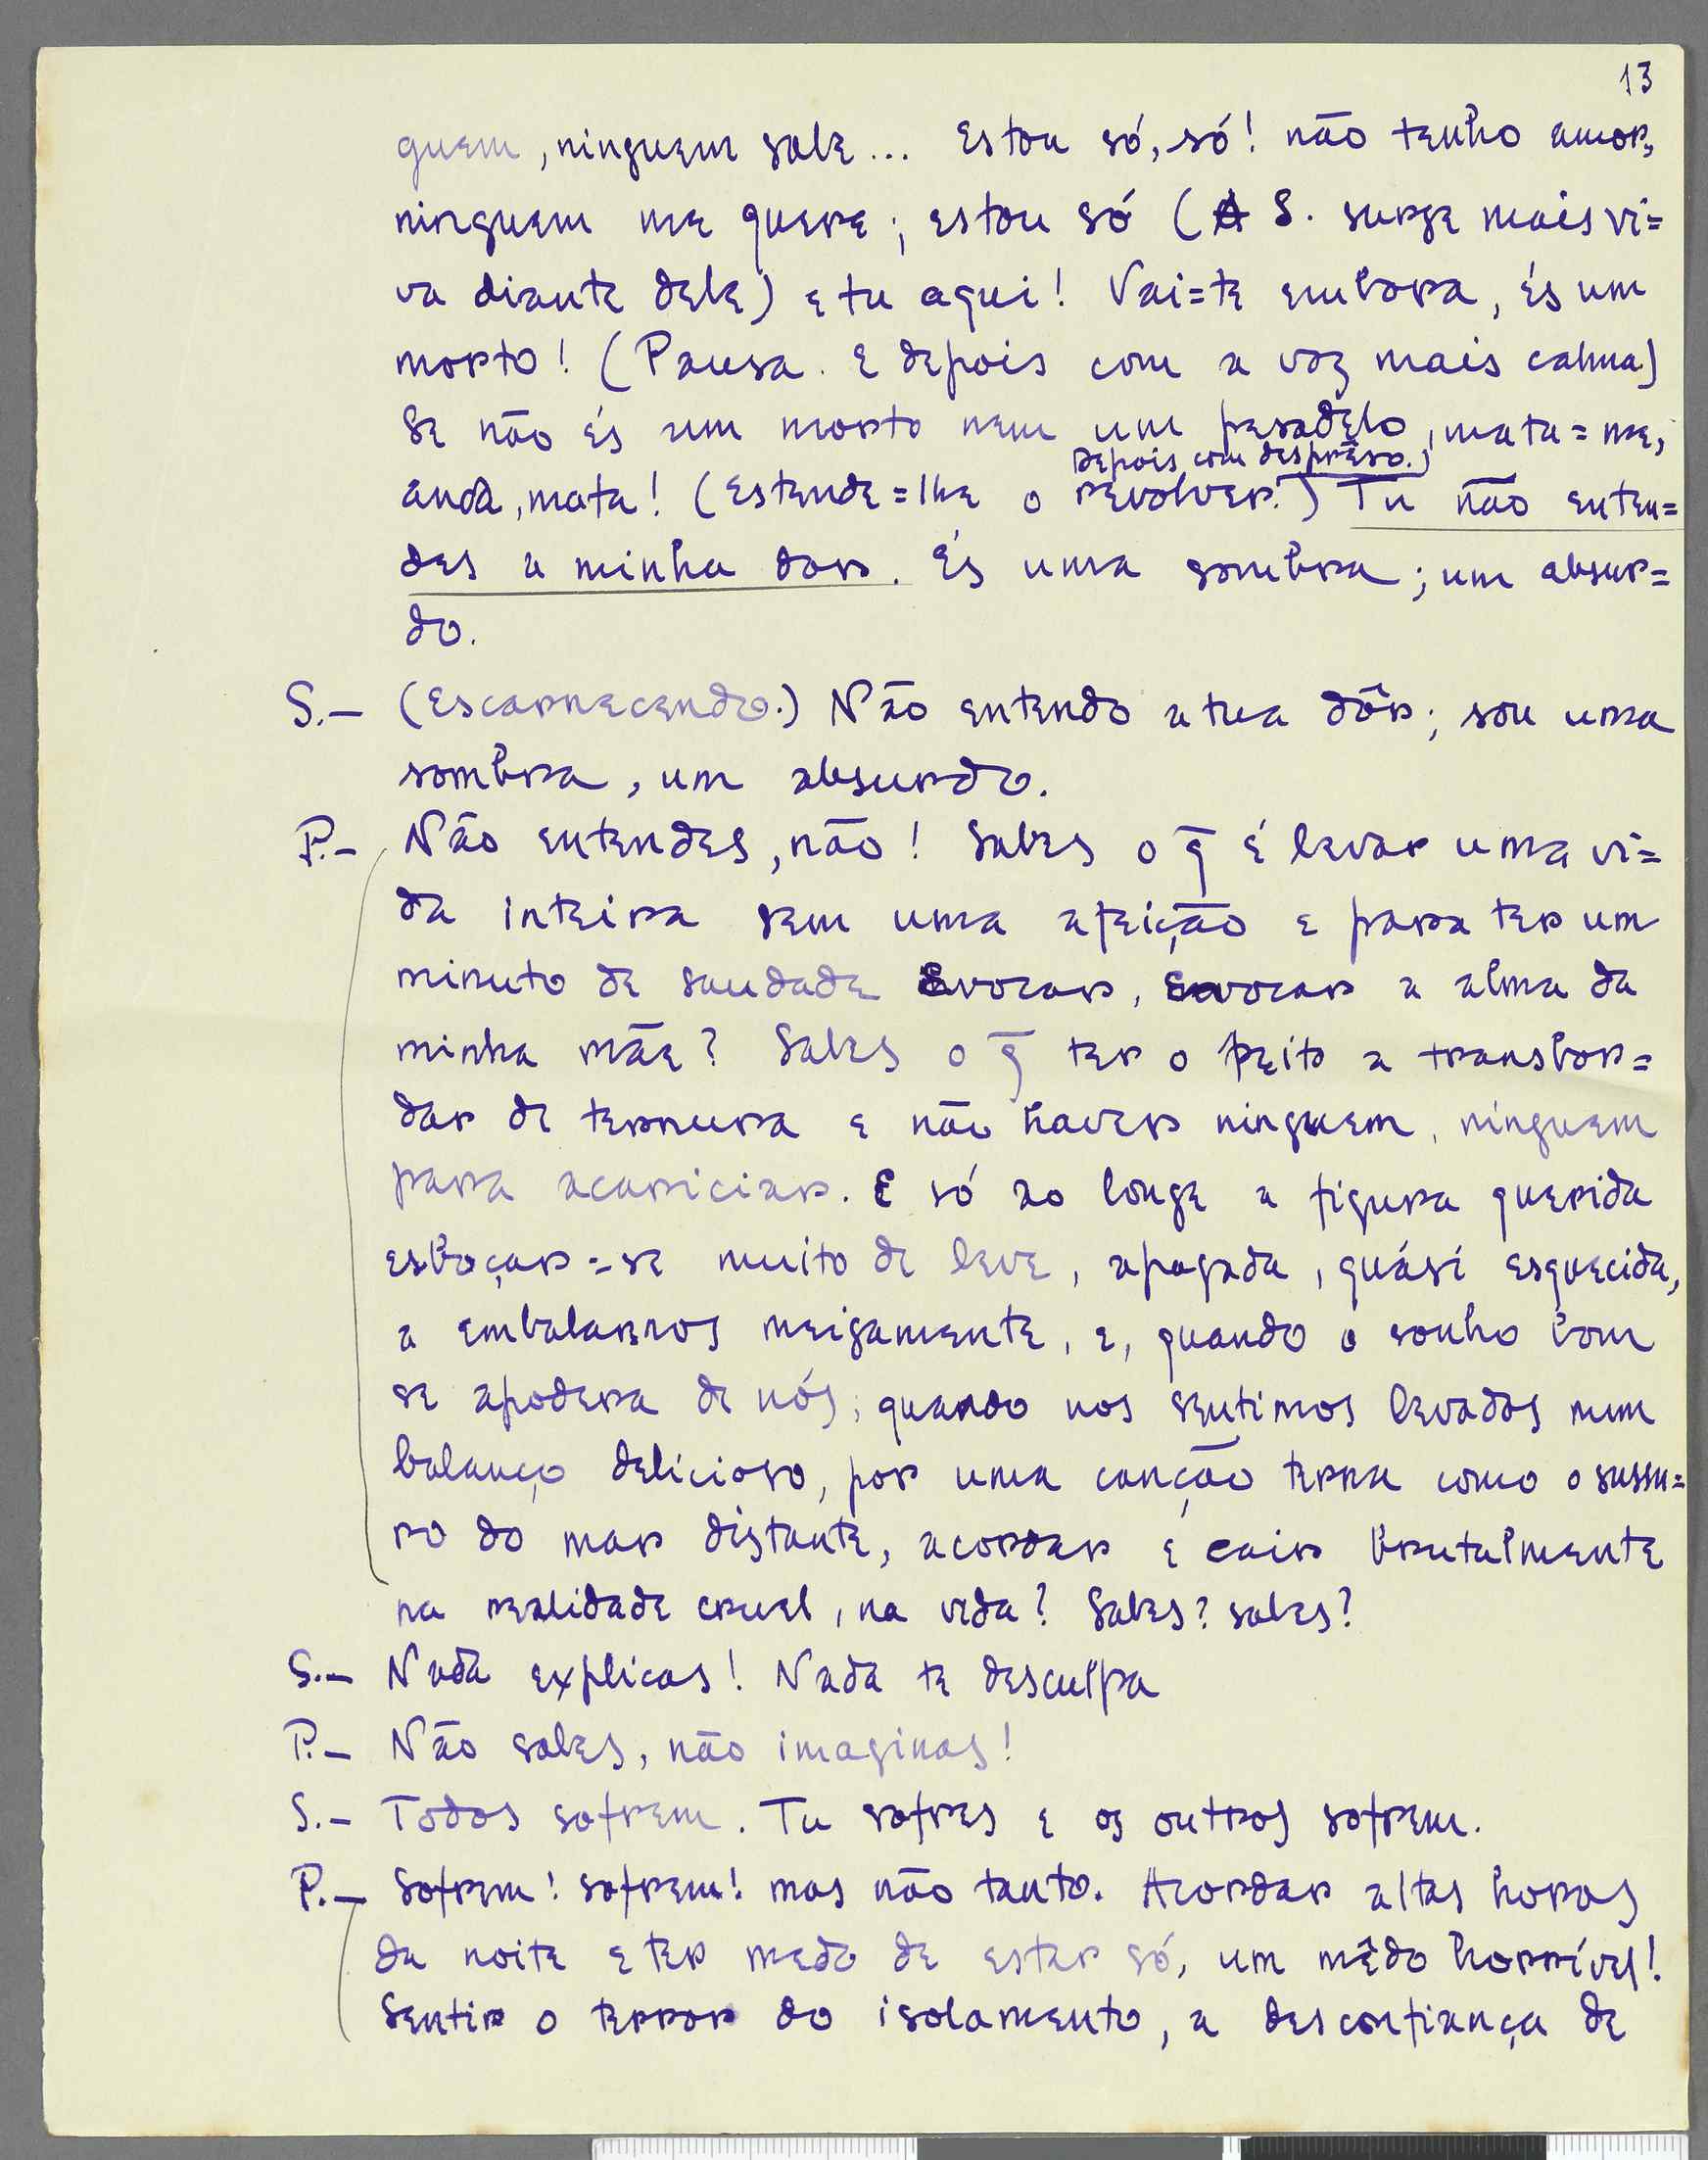 13
guem, ninguem sabe... Estou só, só! não tenho amor,
ninguem me quere; estou só (A S. surge mais vi=
va diante dele) e tu aqui! Vai=te embora, és um
morto! (Pausa. E depois com a voz mais calma)
Se não és um morto nem um pesadelo, mata=me,
Depois, com desprêso.)
anda, mata! (Estende=lhe o revolver.) Tu não enten=
des a minha dor. És uma sombra; um absur=
do.
S.— (Escarnecendo.) Não entendo a tua dôr; sou uma
sombra, um absurdo.
P.— Não entendes, não! Sabes o q̃ é levar uma vi=
da inteira sem uma afeição e para ter um
minuto de saudade evocar, evocar a alma da
minha mãe? Sabes o q̃ ter o peito a transbor=
dar de ternura e não haver ninguem, ninguem
para acariciar. E só ao longe a figura querida
esboçar=se muito de leve, apagada, quási esquecida,
a embalarnos meigamente, e, quando o sonho bom
se apodera de nós; quando nos sentimos levados num
balanço delicioso, por uma canção terna como o sussu=
ro do mar distante, acordar e cair brutalmente
na realidade cruel, na vida? Sabes? sabes?
S.— Nada explicas! Nada te desculpa
P.— Não sabes, não imaginas!
S.— Todos sofrem. Tu sofres e os outros sofrem.
P.— Sofrem! sofrem! mas não tanto. Acordar altas horas
da noite e ter medo de estar só, um mêdo horrível!
Sentir o terror do isolamento, a desconfiança de